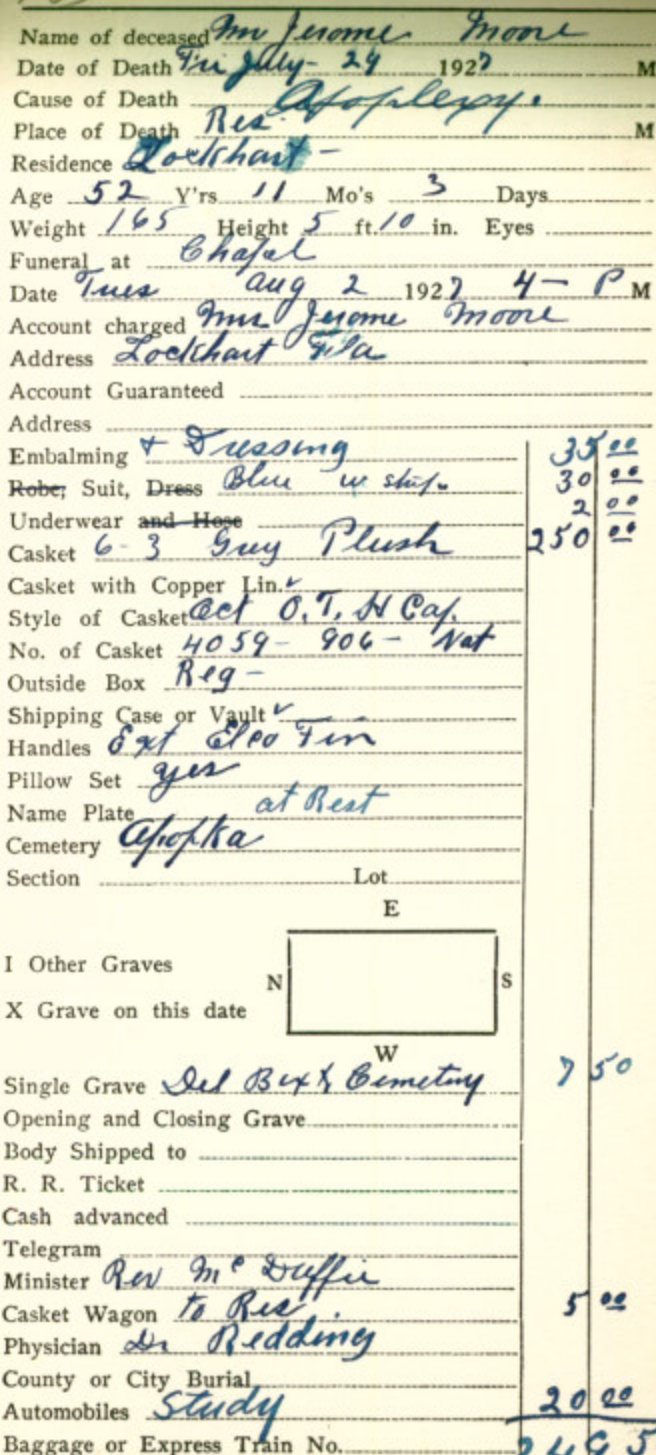 Name of deceased Mr Jerome Moore
Date of Death Fri July - 29 1927 M
Cause of Death Apoplexy.
Place of Death Res. M
Residence Lockhart -
Age 52 Y'rs 11 Mo's 3 Days
Weight 165 Height 5 ft. 10 in. Eyes
Funeral at Chapel
Date Tues Aug 2 1927 4 - P M
Account charged Mrs Jerome Moore
Address Lockhart Fla
Account Guaranteed
Address
Embalming + Dressing 35 00
Robe, Suit, Dress Blue w 30 00
Underwear and Hose 2 00
Casket 6-3 Grey Plush 250 00
Casket with Copper Lin. ✓
Style of Casket Oct O.T. H Cap.
No. of Casket 4059 - 906 - Nat
Outside Box Reg -
Shipping Case or Vault ✓
Handles Ext Fin
Pillow Set yes
Name Plate at Rest
Cemetery Apopka
Section Lot
E
I Other Graves
N S
X Grave on this date
W
Single Grave Del Box to Cemetery 7 50
Opening and Closing Grave
Body Shipped to
R. R. Ticket
Cash advanced
Telegram
Minister Rev McDuffie
Casket Wagon to Res. 5 00
Physician Dr Redding
County or City Burial
Automobiles Study 20 00
Baggage or Express Train No.